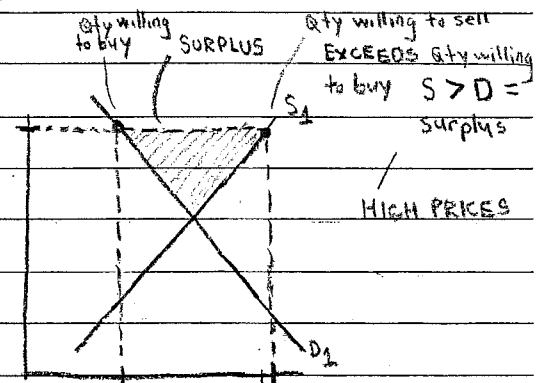 Qty willing
to buy
SURPLUS
Qty willing to sell
EXCEEDS Qty willing
to buy S > D =
surplus
S1
HIGH PRICES
D1